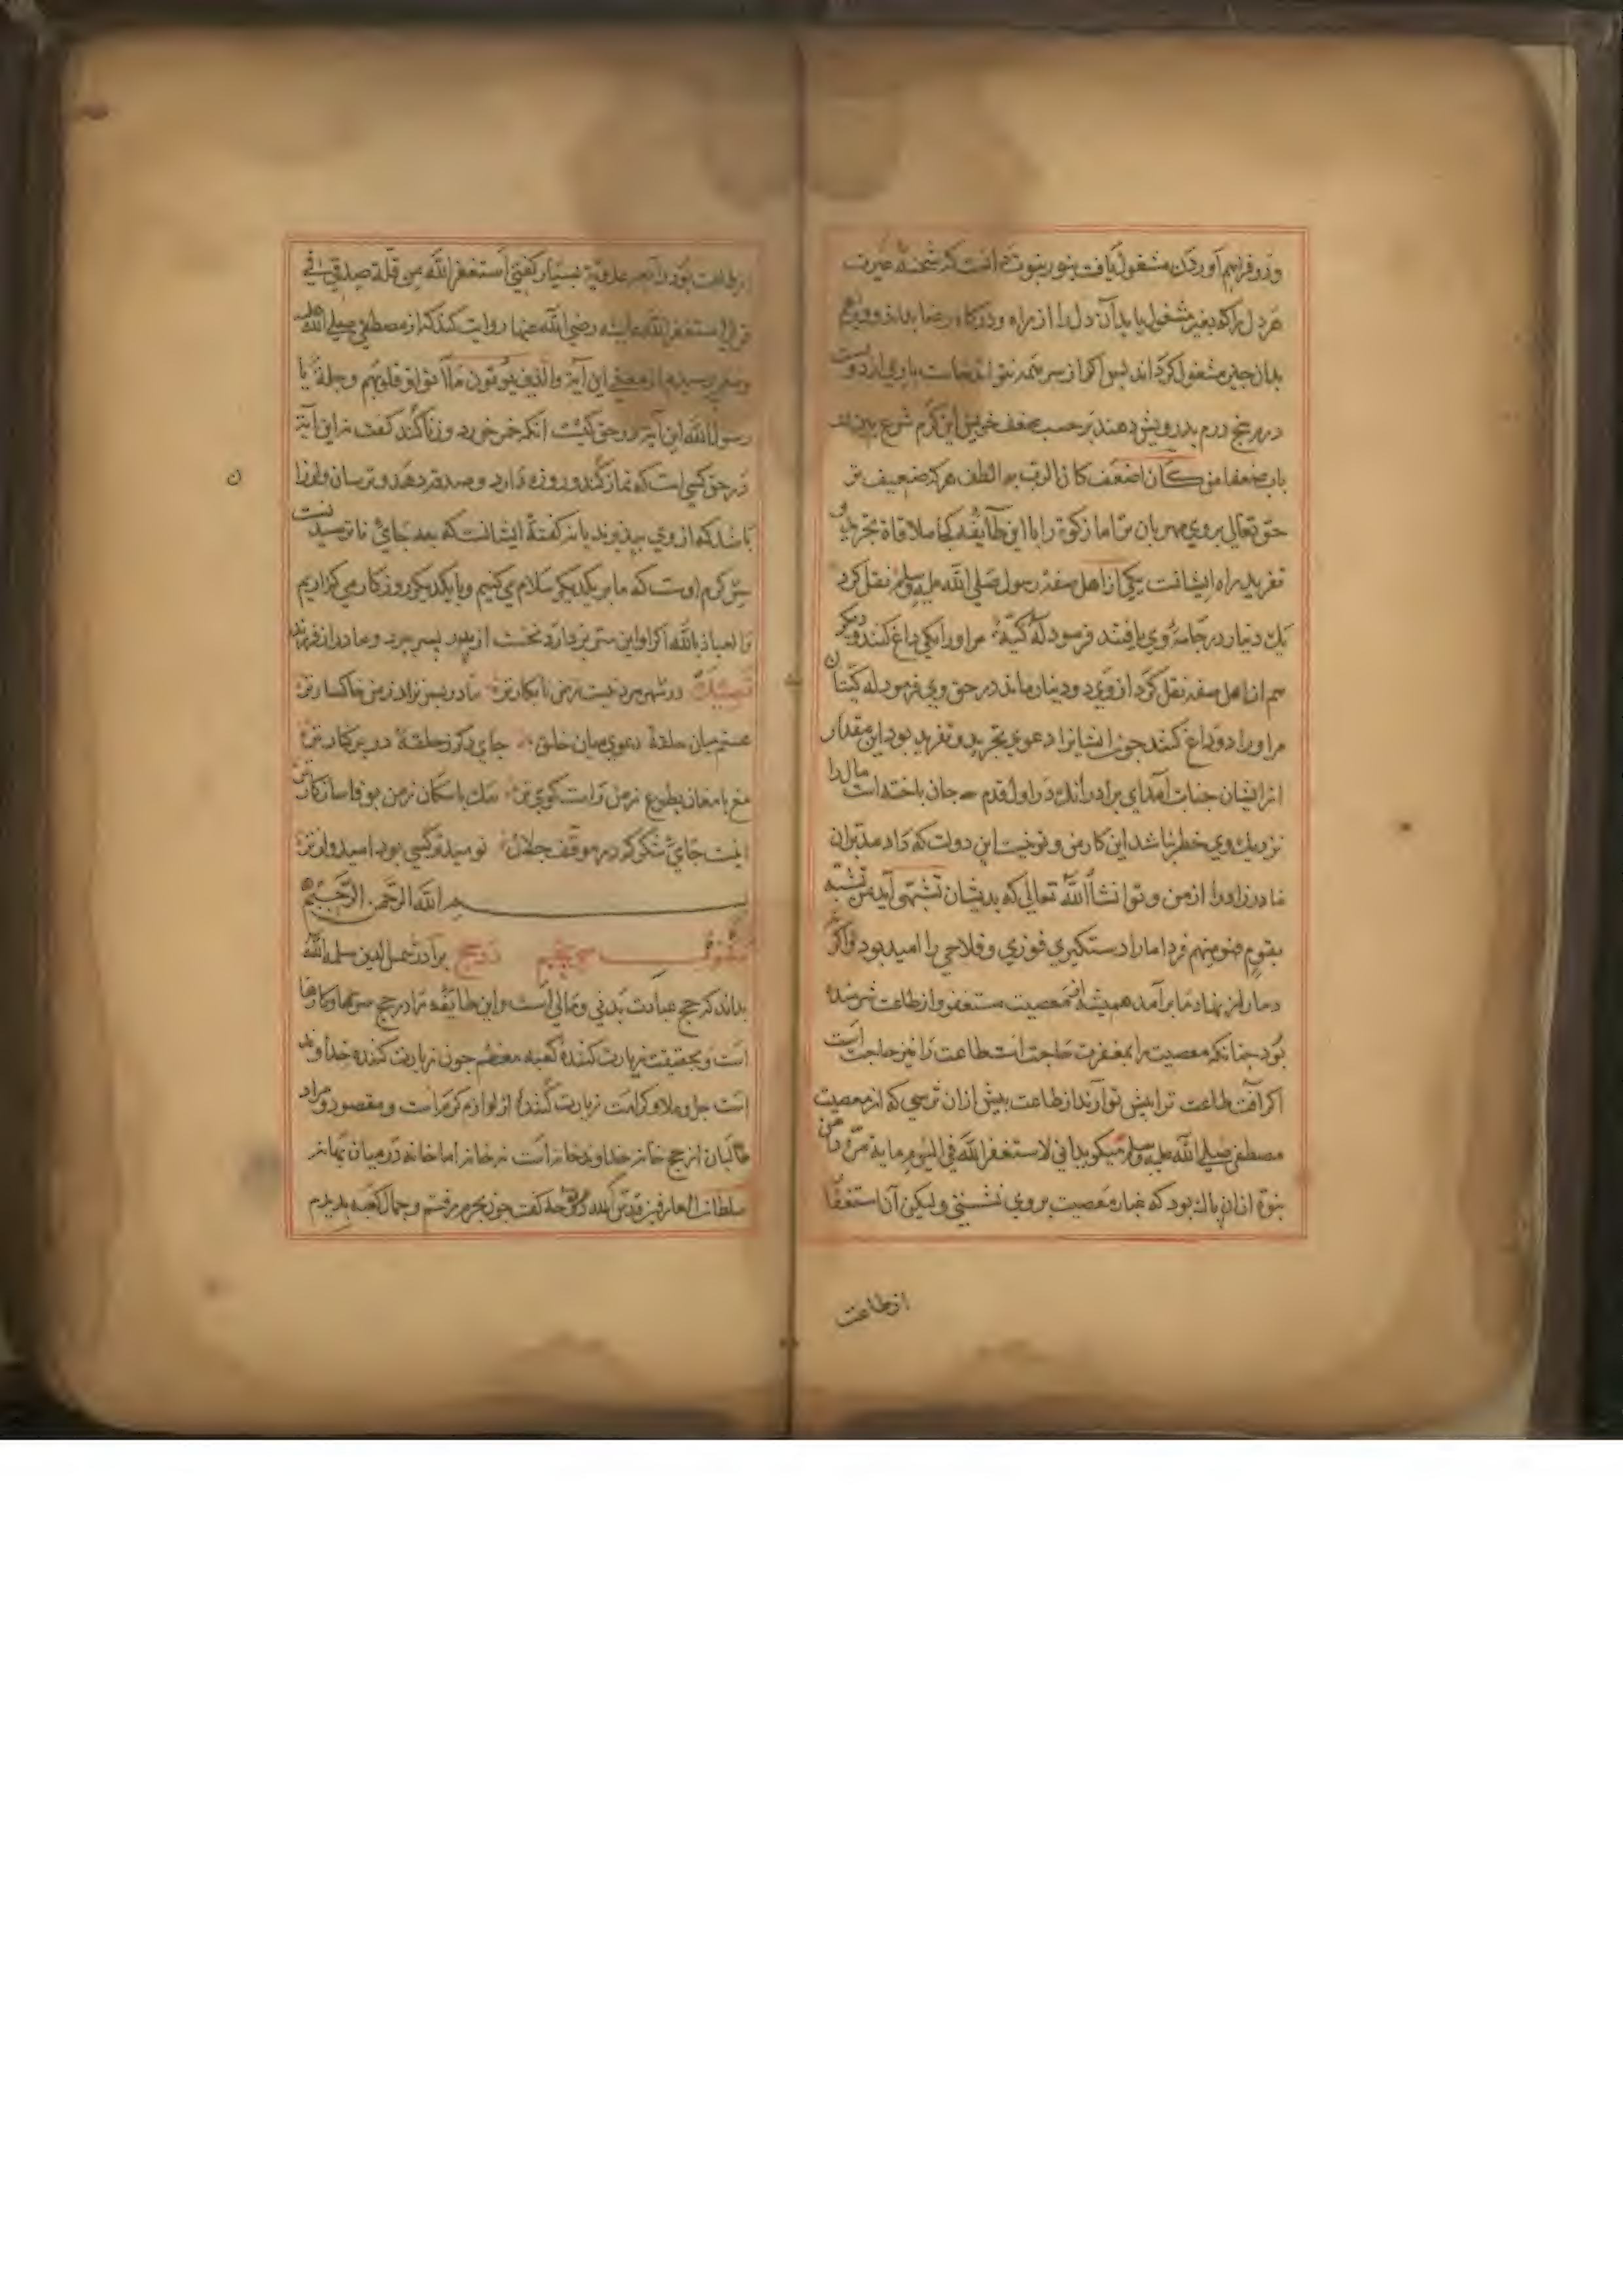 وزر و فراهم آوردن مشغول یافت بنور نبوت دانست که شحنهٔ غیرت
هر دل را که بغیر مشغول یابد آن دل را از راه و درکاه رضا
بدان چیز مشغول کرداند پس اکر از سر همه نتوانند خاست باری از دویست
درم پنج درم بدرویش دهند بر حسب ضعف خویش این کرم شرع
من کان اضعف کان الرب به الطف هر که ضعیف تر
حق تعالی بروی مهربان تر اما زکوة را با این طایفه کجا ملاقاة تجرید و
تفرید راه ایشانست یکی از اهل صفه رسول صلی الله علیه وسلم نقل کرد
یک دینار در جامهٔ وی یافتند فرمود له کیة مر او را یکی داغ کنند و دیکر
هم از اهل صفه نقل کرد از وی دو دینار ماند در حق وی فرمود له کیتان
مر او را دو داغ کنند چون ایشانرا دعوی تجرید و تفرید بود این مقدار
از ایشان جنایت آمد ای برادر آنکه در اول قدم جان باخته است مال را
نزدیک وی خطر نباشد این کار من و تو نیست این دولت که داد مدبران
مادرزاد را از من و تو انشاالله تعالی که بدیشان تشبهی آید من تشبه
بقوم فهو منهم فردا ما را دستکیری فوزی و فلاحی را امید بود و اکر نه
دمار از نهاد ما بر آمد همیشه از معصیت مستغفر و از طاعت شرمنده
بود چنانکه معصیت را بمغفرت حاجت است طاعت را نیز حاجت است
اکر آفت طاعت ترا پیش تو آرند از طاعت بیش از آن ترسی که از معصیت
مصطفی صلی الله علیه وسلم میکوید انی لاستغفر الله فی الیوم مایة مرة دامن
نبوة از آن پاک بود که غبار معصیت بروی نشستی ولیکن آن استغفار
از طاعت
از طاعت بود رابعه عدویة بسیار کفتی استغفر الله من قلة صدقی فی
قولی استغفر الله عایشه رضی الله عنها روایت کند که از مصطفی صلی الله علیه
وسلم پرسیدم از معنی این آیة والذین یؤتون ما آتوا وقلوبهم وجلة یا
رسول الله این آیة در حق کیست آنکه خمر خورد و زنا کند کفت نه این آیة
در حق کسی است که نماز کند و روزه دارد و صدقه دهد و ترسان و لرزان
باشد که از وی بپذیرند یا نه کفتهٔ ایشانست که بعد جای نا نومیدیست
کرم اوست که ما بر یکدیکر سلام می کنیم و با یکدیکر روزکار می کذاریم
والعیاذ بالله اکر او این ستر بر دارد نخست از پدر پسر برد و مادر از فرزند
در شهر مرد نیست ز من نابکارتر مادر پسر نزاد ز من خاکسارتر
هستم میان حلقهٔ دعوی میان خلق جای دکر ز حلقهٔ دو برکنارتر
مغ با مغان بطوع ز من راست کوی تر سک با سکان ز من بوفا سازکارتر
اینست جای شکر که در موقف جلال نومیدتر کسی بود امیدوارتر
بسم الله الرحمن الرحیم
در حج برادرم شمس الدین سلمه الله
بداند که حج عبادت بدنی و مالی است و این طایفه را در حج سرها و کارها
است و بحقیقت زیارت کنندهٔ کعبه معظم چون زیارت کننده خداوند
است جل و علا و کرامت زیارت کننده از لوازم کرم است و مقصود و مراد
طالبان از حج خانه خداوند خانه است نه خانه اما خانه در میان بهانه
سلطان العارفین قدس الله روحه کفت چون بحرم رفتم و جمال کعبه بدیدم